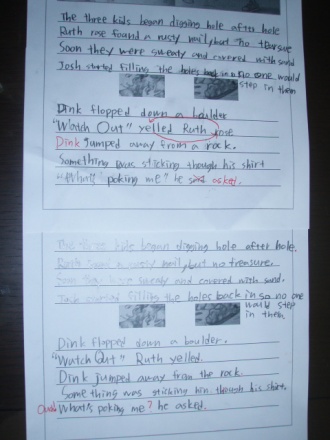 The three kids began digging hole after hole
Ruth rose found a rusty nail, but no
Soon they were sweaty and covered with sand
Josh started filling the holes back in so no one would
step in them
Dink flopped down a boulder
"Watch Out" yelled Ruth rose
Dink jumped away from a rock.
Something was sticking though his shirt
"What's poking me?" he said asked.
The three hole began digging hole after hole.
Ruth found a rusty nail, but no treasure.
Soon they were sweaty and covered with sand.
Josh started filling the holes back in so no one
would step
in them.
Dink flopped down a boulder.
"Watch Out" Ruth yelled.
Dink jumped away from the rock.
Something was sticking him though his shirt.
What's poking me? he asked.